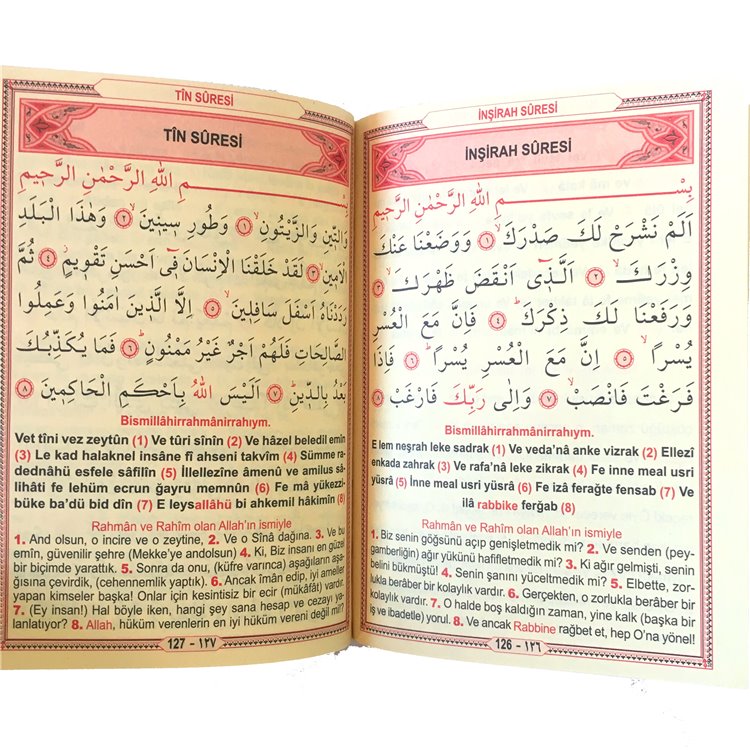 İNŞİRAH SÛRESİ
İNŞİRAH SÛRESİ
بِسْمِ اللّٰهِ الرَّحْمٰنِ الرَّح۪يمِ
اَلَمْ نَشْرَحْ لَكَ صَدْرَكَۙ ﴿١﴾ وَوَضَعْنَا عَنْكَ
وِزْرَكَۙ ﴿٢﴾ اَلَّذ۪ٓي اَنْقَضَ ظَهْرَكَۙ ﴿٣﴾
وَرَفَعْنَا لَكَ ذِكْرَكَۜ ﴿٤﴾ فَاِنَّ مَعَ الْعُسْرِ
يُسْرًاۙ ﴿٥﴾ اِنَّ مَعَ الْعُسْرِ يُسْرًاۜ ﴿٦﴾ فَاِذَا
فَرَغْتَ فَانْصَبْۙ ﴿٧﴾ وَاِلٰى رَبِّكَ فَارْغَبْ ﴿٨﴾
Bismillâhirrahmânirrahıym.
E lem neşrah leke sadrak (1) Ve veda'nâ anke vizrak (2) Ellezî
enkada zahrak (3) Ve rafa'nâ leke zikrak (4) Fe inne meal usri
yüsrâ (5) İnne meal usri yüsrâ (6) Fe izâ ferağte fensab (7) Ve
ilâ rabbike ferğab (8)
Rahmân ve Rahîm olan Allah'ın ismiyle
1. Biz senin göğsünü açıp genişletmedik mi? 2. Ve senden (pey-
gamberliğin) ağır yükünü hafifletmedik mi? 3. Ki ağır gelmişti, senin
belini bükmüştü! 4. Senin şanını yüceltmedik mi? 5. Elbette, zor-
lukla berâber bir kolaylık vardır. 6. Gerçekten, o zorlukla berâber bir
kolaylık vardır. 7. O halde boş kaldığın zaman, yine kalk (başka bir
iş ve ibadetle) yorul. 8. Ve ancak Rabbine rağbet et, hep O'na yönel!
126 - ١٢٦
TÎN SÛRESİ
TÎN SÛRESİ
بِسْمِ اللّٰهِ الرَّحْمٰنِ الرَّح۪يمِ
وَالتّ۪ينِ وَالزَّيْتُونِۙ ﴿١﴾ وَطُورِ س۪ين۪ينَۙ ﴿٢﴾ وَهٰذَا الْبَلَدِ
الْاَم۪ينِۙ ﴿٣﴾ لَقَدْ خَلَقْنَا الْاِنْسَانَ ف۪ٓي اَحْسَنِ تَقْو۪يمٍۘ ﴿٤﴾ ثُمَّ
رَدَدْنَاهُ اَسْفَلَ سَافِل۪ينَۙ ﴿٥﴾ اِلَّا الَّذ۪ينَ اٰمَنُوا وَعَمِلُوا
الصَّالِحَاتِ فَلَهُمْ اَجْرٌ غَيْرُ مَمْنُونٍۜ ﴿٦﴾ فَمَا يُكَذِّبُكَ
بَعْدُ بِالدّ۪ينِۜ ﴿٧﴾ اَلَيْسَ اللّٰهُ بِاَحْكَمِ الْحَاكِم۪ينَ ﴿٨﴾
Bismillâhirrahmânirrahıym.
Vet tîni vez zeytûn (1) Ve tûri sînîn (2) Ve hâzel beledil emîn
(3) Le kad halaknel insâne fî ahseni takvîm (4) Sümme ra-
dednâhü esfele sâfilîn (5) İllellezîne âmenû ve amilus sâ-
lihâti fe lehüm ecrun ğayru memnûn (6) Fe mâ yükezzi-
büke ba'dü bid dîn (7) E leysallâhü bi ahkemil hâkimîn (8)
Rahmân ve Rahîm olan Allah'ın ismiyle
1. And olsun, o incire ve o zeytine, 2. Ve o Sînâ dağına. 3. Ve bu
emîn, güvenilir şehre (Mekke'ye andolsun) 4. Ki, Biz insanı en güzel
bir biçimde yarattık. 5. Sonra da onu, (küfre varınca) aşağıların aşa-
ğısına çevirdik, (cehennemlik yaptık). 6. Ancak îmân edip, iyi ameller
yapan kimseler başka! Onlar için kesintisiz bir ecir (mükâfât) vardır.
7. (Ey insan!) Hal böyle iken, hangi şey sana hesap ve cezayı ya-
lanlatıyor? 8. Allah, hüküm verenlerin en iyi hüküm vereni değil mi?
127 - ١٢٧